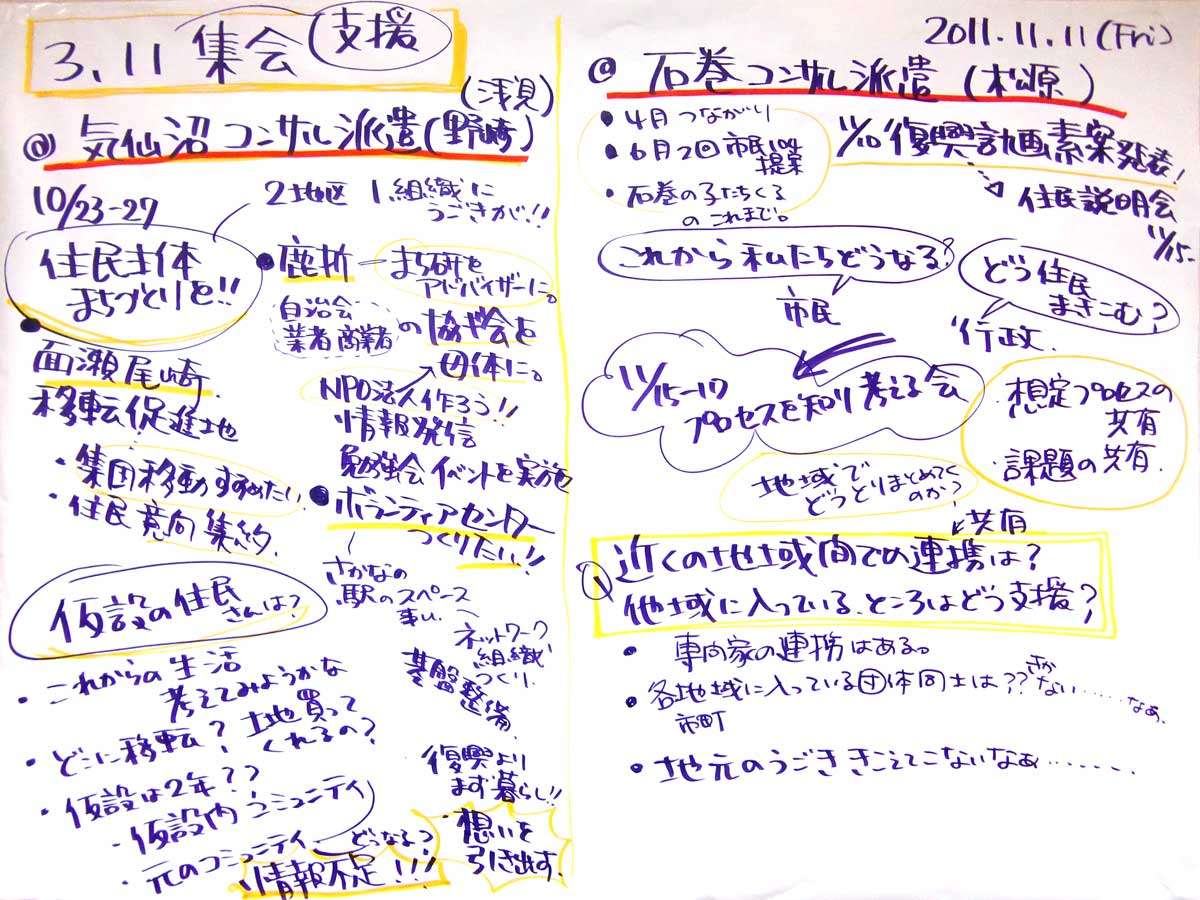 3.11 集会 支援
(浅見)
@ 気仙沼 コンサル派遣(野崎)
10/23-27
2地区 1組織に
うごきが!!
住民主体
まちづくりを!!
● 鹿折 ― まち研を
アドバイザーに。
自治会
業者 商業者 の 協ギ会を
母体に。
NPO法人作ろう!!
情報発信
勉強会 イベントを実施
● 面瀬尾崎
移転促進地
・集団移動すすめたい
・住民意向集約
● ボランティアセンター
つくりたい!!
さかなの
駅のスペース
ネットワーク
組織
づくり
基盤整備
仮設の住民
さんは?
・これからの生活
考えてみようかな
・どこに移転? 土地買って
くれるの?
・仮設は2年??
・仮設内コミュニティ
・元のコミュニティ どうなる?
情報不足!!!
復興より
まず暮らし!!
想いを
引き出す.
2011.11.11(Fri)
@ 石巻コンサル派遣 (松原)
● 4月つながり
● 6月2回市民
提案
● 石巻の子たちくる
のこれまで。
11/10 復興計画素案発表!
住民説明会
11/15-
これから私たちどうなる?
市民
どう住民
まきこむ?
行政.
11/15-17
プロセスを知り考える会
・想定プロセスの
共有
・課題の共有.
地域で
どうとりまとめてく
のか?
共有
Q 近くの地域間での連携は?
他域に入っている、ところはどう支援?
● 専門家の連携はある。
● 各地域に入っている団体同士は?? ない……なぁ.
市町
● 地元のうごき きこえてこないなぁ………